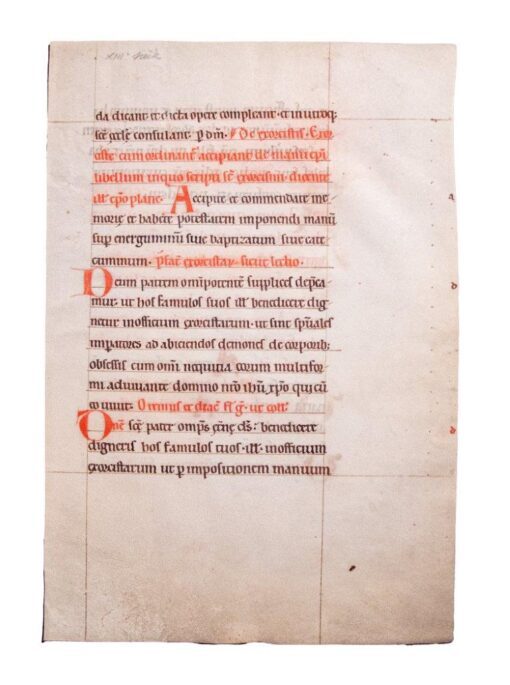 da dicant et dicta opere compleant · et in utroq;
scē ecclē consulant. p dm̄. De exorcistis. Exor
ciste cum ordinant̄ accipiant de manu ep̄i
libellum in quo scripti st̄ exorcismi dicente
illi ep̄o plane. Accipite et commendate me
morie et habete potestatem imponendi manū
sup energuminū siue baptizatum siue cate
cuminum. p̄fac̄ exorcistar sicut lectio.
Deum patrem om̄ipotentē supplices dep̄ca
mur: ut hos famulos suos ill̄ benedicere dig
netur in officium exorcistarum ut sint sp̄uales
imp̄atores ad abiciendos demones de corporib;
obsessis cum om̄i nequitia eorum multifor
mi adiuuante domino nr̄o ih̄u xp̄o qui cū
eo uiuit. ut coll̄.
Dn̄e scē pater omp̄s et̄ne ds̄: benedicere
digneris hos famulos tuos ill̄ in officium
exorcistarum ut p impositionem manuum